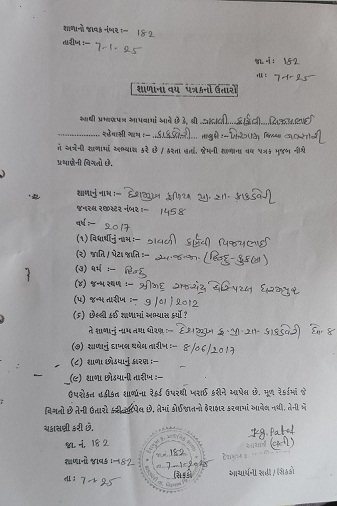 શાળાનો જાવક નંબર:- 182
તારીખ:- 7-1-25
જા. નં: 182
તા: 7-1-25
શાળાના વય પત્રકનો ઉતારો
આથી પ્રમાણપત્ર આપવામાં આવે છે કે, શ્રી ગવળી વિજયભાઈ
રહેવાસી ગામ:- તાલુકો:- જિલ્લા
તે અત્રેની શાળામાં અભ્યાસ કરે છે / કરતા હતાં. જેમની શાળાના વય પત્રક મુજબ નીચે
પ્રમાણેની વિગતો છે.
શાળાનું નામ:-
જનરલ રજીસ્ટર નંબર:- 1458
વર્ષ:- 2017
(૧) વિદ્યાર્થીનું નામ:- ગવળી વિજયભાઈ
(૨) જાતિ / પેટા જાતિ:- અ.જ.જા. (હિન્દુ-કુકણા)
(૩) ધર્મ:- હિન્દુ
(૪) જન્મ સ્થળ:- શ્રીમદ રાજચંદ્ર ધરમપુર
(૫) જન્મ તારીખ:- 9/01/2012
(૬) છેલ્લી કઈ શાળામાં અભ્યાસ કર્યો?
તે શાળાનું નામ તથા ધોરણ:-
(૭) શાળાનું દાખલ થયેલ તારીખ:- 8/06/2017
(૮) શાળા છોડયાનું કારણ:-
(૯) શાળા છોડયાની તારીખ:-
ઉપરોક્ત હકીકત શાળાના રેકર્ડ ઉપરથી ખરાઈ કરીને આપેલ છે. મૂળ રેકર્ડમાં જે
વિગતો છે તેની ઉતારો કરી આપેલ છે. તેમાં કોઈજાતનો ફેરફાર કરવામાં આવેલ નથી. તેની મેં
ચકાસણી કરી છે.
જા. નં. 182
શાળાનો જાવક:- 182
તા: 7-1-25
નં. 182
તા. 7-1-2025
સિક્કો
આચાર્યની સહી / સિક્કો